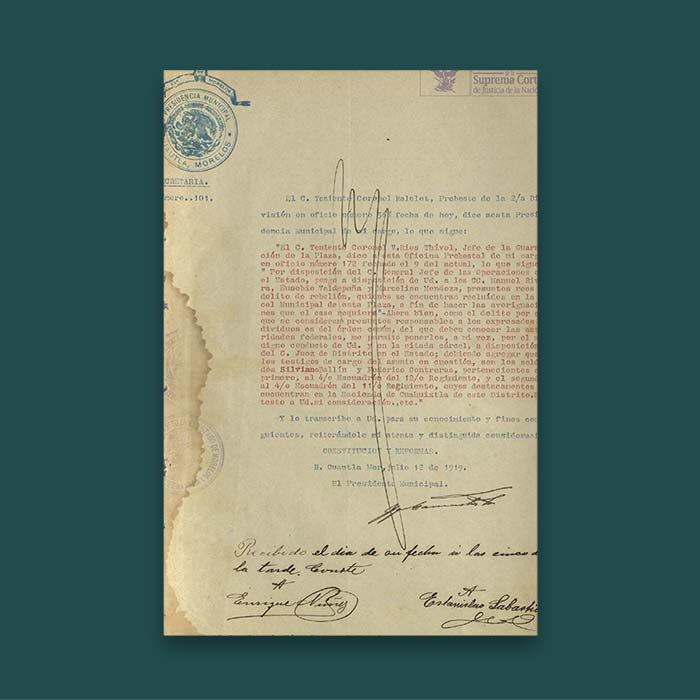 Suprema Cort
de Justicia de la Nació
PRESIDENCIA MUNICIPAL
CUAUTLA, MORELOS
CRETARIA.
mero..101.
El C. Teniente Coronel Balelot, Preboste de la 2/a Di
visión en oficio número fecha de hoy, dice aesta Presi
dencia Municipal de mi cargo, lo que sigue:
"El C. Teniente Coronel V.Rios Thivol, Jefe de la Guarn
ción de la Plaza, dice a esta Oficina Prebostal de mi carg
en oficio número 172 fechado el 9 del actual, lo que sigue
" Por disposición del C. General Jefe de las Operaciones e
el Estado, ponga a disposición de Ud. a los CC. Manuel Riv
ra, Eusebio Valdepeña y Marcelino Mendoza, presuntos reos
delito de rebelión, quienes se encuentran recluidos en la
cel Municipal de esta Plaza, a fin de hacer las averiguaci
nes que el caso requiera"-Ahora bien, como el delito por e
que se consideran presuntos responsables a los expresados
dividuos es del órden común, del que deben conocer las aut
ridades federales, me permito ponerlos, a mi vez, por el m
digno conducto de Ud. y en la citada cárcel, a disposición
del C. Juez de Distrito en el Estado; debiendo agregar que
los testigos de cargo del asunto en cuestión, son los sold
dos Silviano Gallín y Federico Contreras, pertenecientes e
primero, al 4/o Escuadrón del 12/o Regimiento, y el segund
al 4/o Escuadrón del 11/o Regimiento, cuyos destacamentos
encuentran en la Hacienda de Cuahuixtla de este Distrito.
testo a Ud.mi consideración.,etc."
Y lo transcribo a Ud. para su conocimiento y fines con
guientes, reiterándole mi atenta y distinguida consideraci
CONSTITUCION Y REFORMAS.
H. Cuautla Mor, julio 12 de 1919.
El Presidente Municipal.
Recibido el dia de su fecha á las cinco d
la tarde. Conste
A A
Enrique Nuñez Estanislao Sabasti